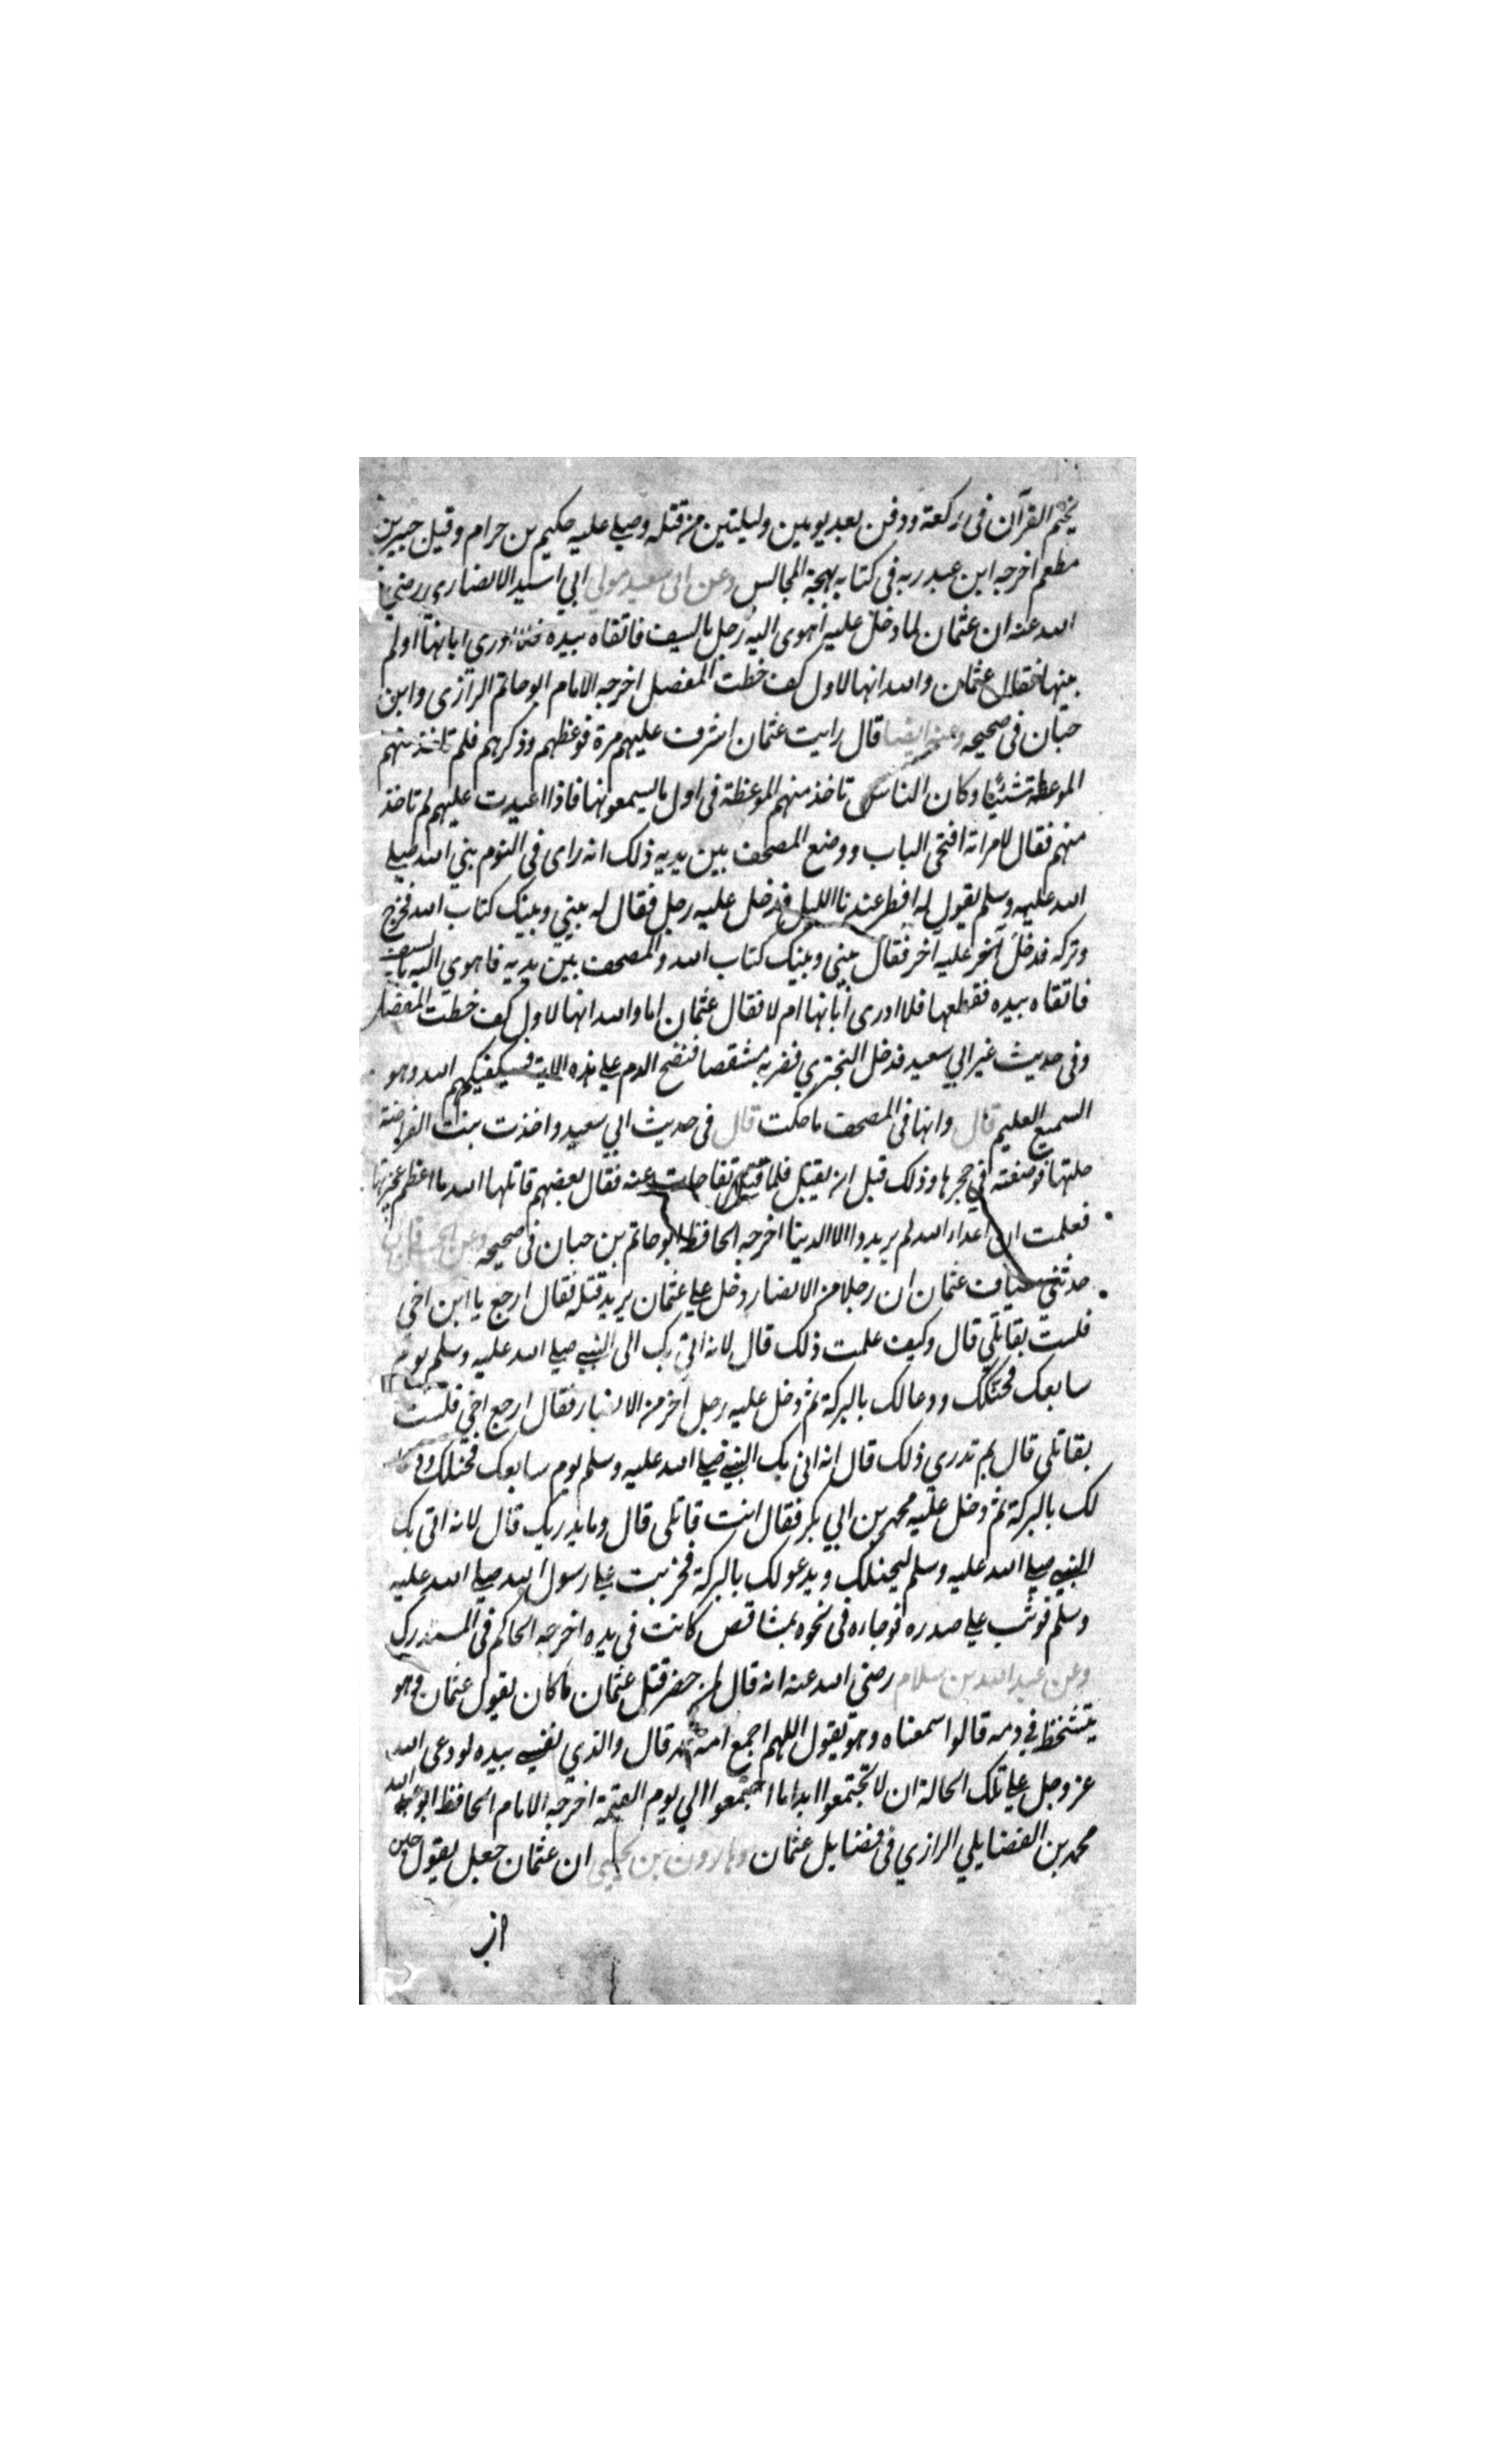 يختم القرآن فى ركعة ودفن بعد يومين وليلتين من قتله وصلى عليه حكيم بن حرام وقيل جبير بن
مطعم اخرجه ابن عبد ربه فى كتابه بهجة المجالس وعن ابى سعيد مولى ابي اسيد الانصارى رضي
الله عنه ان عثمان لما دخل عليه اهوى اليه رجل بالسيف فاتقاه بيده ادري ابانها اولم
يبنها فقال عثمان والله انها لاول كف خطت المفصل اخرجه الامام ابو حاتم الرازى وابن
حبان فى صحيحه وعنه ايضا قال رايت عثمان اشرف عليهم مرة فوعظهم وذكرهم فلم تاخذ منهم
الموعظة شيئا وكان الناس تاخذ منهم الموعظة فى اول ما يسمعونها فاذا اعيدت عليهم لم تاخذ
منهم فقال لامراته افتحى الباب ووضع المصحف بين يديه ذلك انه راى فى النوم نبي الله صلى
الله عليه وسلم يقول له افطر عندنا الليل فدخل عليه رجل فقال له بيني وبينك كتاب الله فخرج
وتركه فدخل آخر عليه آخر فقال بيني وبينك كتاب الله والمصحف بين يديه فاهوى اليه بالسيف
فاتقاه بيده فقطعها فلا ادرى أبانها ام لا فقال عثمان اما والله انها لاول كف خطت المفصل
وفى حديث غير ابي سعيد فدخل التجترى فضربه مشقصا فنضح الدم على هذه الاية فسيكفيكهم الله وهو
السميع العليم قال وانها فى المصحف ما حكت قال فى حديث ابي سعيد واخذت بنت الفرافصة
حليها فوضعته في حجرها وذلك قبل ان يقتل فلما قتل تفاجت عنه فقال بعضهم قاتلها الله ما اعظم عجيزتها
فعلمت ان اعداء الله لم يريدوا الا الدنيا اخرجه الحافظ ابو حاتم بن حبان فى صحيحه وعن الحسن قال
حدثني سياف عثمان ان رجلا من الانصار دخل على عثمان يريد قتله فقال ارجع يا ابن اخي
فلست بقاتلي قال وكيف علمت ذلك قال لانه اتي بك الى النبى صلى الله عليه وسلم يوم
سابعك فحنكك ودعا لك بالبركة ثم دخل عليه رجل آخر من الانصار فقال ارجع اخي فلست
بقاتلى قال بم تدري ذلك قال انه اتى بك النبى صلى الله عليه وسلم يوم سابعك فحنكك ودعا
لك بالبركة ثم دخل عليه محمد بن ابي بكر فقال انت قاتلى قال وما يدريك قال لانه اتى بك
النبى صلى الله عليه وسلم ليحنكك ويدعو لك بالبركة فخزيت على رسول الله صلى الله عليه
وسلم فوثب على صدره فوجاءه فى نحره بمشاقص كانت في يده اخرجه الحاكم فى المستدرك
وعن عبد الله بن سلام رضي الله عنه انه قال لمن حضر قتل عثمان ما كان يقول عثمان وهو
يتشحط في دمه قالوا سمعناه وهو يقول اللهم اجمع امة محمد قال والذي نفسي بيده لو دعى الله
عز وجل على تلك الحالة ان لا تجتمعوا ابدا ما اجتمعوا الي يوم القيمة اخرجه الامام الحافظ ابو عبد الله
محمد بن الفضايلي الرازي فى فضايل عثمان وهارون بن يحيى ان عثمان جعل يقول حين